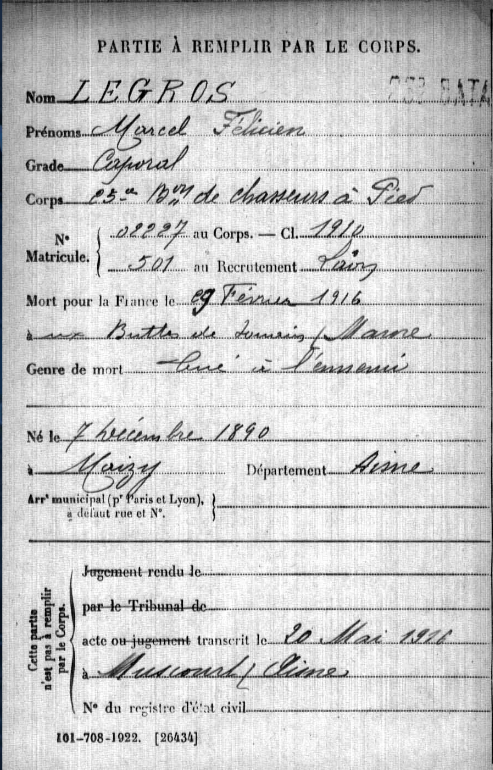 PARTIE À REMPLIR PAR LE CORPS.
Nom LEGROS
Prénoms Marcel Félicien
Grade Caporal
Corps 25e Bon de chasseurs à Pied
N° Matricule. { 02227 au Corps. — Cl. 1910
501 au Recrutement Laon
Mort pour la France le 29 Février 1916
à aux Buttes de Souain / Marne
Genre de mort tué à l'ennemi
Né le 7 Décembre 1890
à Maizy Département Aisne
Arrt municipal (pr Paris et Lyon), à défaut rue et N°. }
Cette partie n'est pas à remplir par le Corps. {
Jugement rendu le
par le Tribunal de
acte ou jugement transcrit le 20 Mai 1916
à Muscourt / Aisne
N° du registre d'état civil
101-708-1922. [26434]